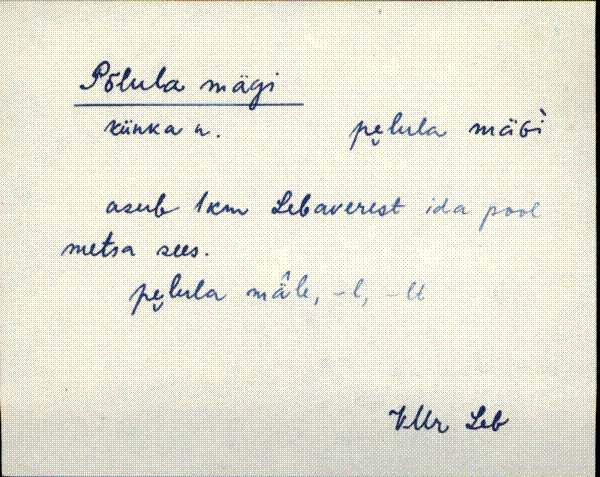 Põlula mägi
künka n. pe̮lula mäɢì
asub 1km Lebaverest ida pool
metsa sees.
pe̮lula mä̂le, -l, -lt
VMr Leb